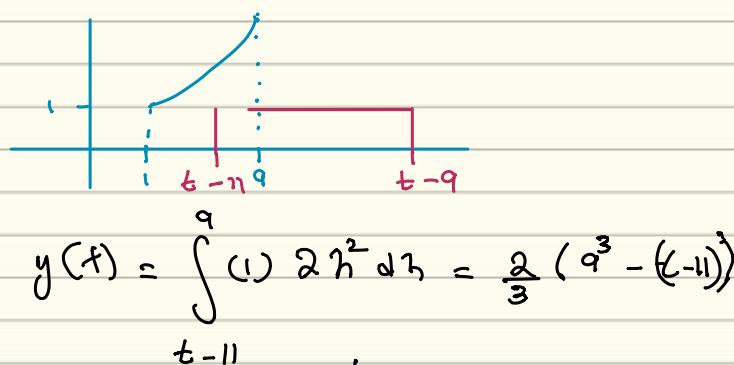 1
1 t-11 9 t-9
y(t) = ∫_{t-11}^{9} (1) 2λ² dλ = 2/3 (9³ - (t-11)³)